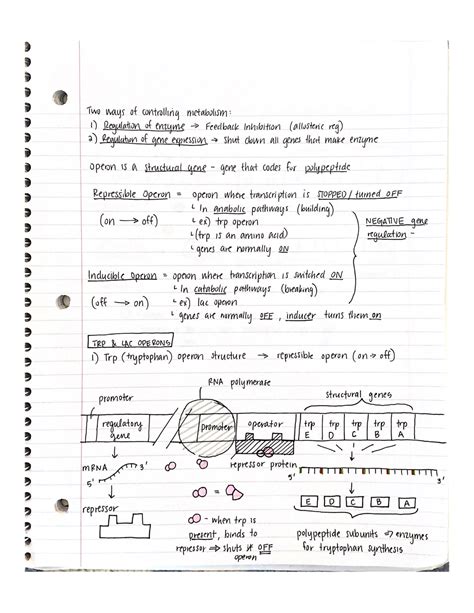 Two ways of controlling metabolism:
1) Regulation of enzyme → Feedback Inhibition (allosteric reg)
2) Regulation of gene expression → Shut down all genes that make enzyme
operon is a structural gene - gene that codes for polypeptide
Repressible Operon = operon where transcription is STOPPED / turned OFF
(on → off)
↳ In anabolic pathways (building)
↳ ex) trp operon
(trp is an amino acid)
↳ genes are normally ON
NEGATIVE gene
regulation -
Inducible Operon = operon where transcription is switched ON
(off → on)
↳ In catabolic pathways (breaking)
↳ ex) lac operon
↳ genes are normally OFF, inducer turns them on
TRP & LAC OPERONS
1) Trp (tryptophan) operon structure → repressible operon (on → off)
RNA polymerase
promoter
structural genes
regulatory
gene
promoter
operator
trp
E
trp
D
trp
C
trp
B
trp
A
mRNA
3'
5'
repressor protein
5'
3'
repressor
=
E D C B A
- when trp is
present, binds to
repressor → shuts OFF
operon
polypeptide subunits → enzymes
for tryptophan synthesis